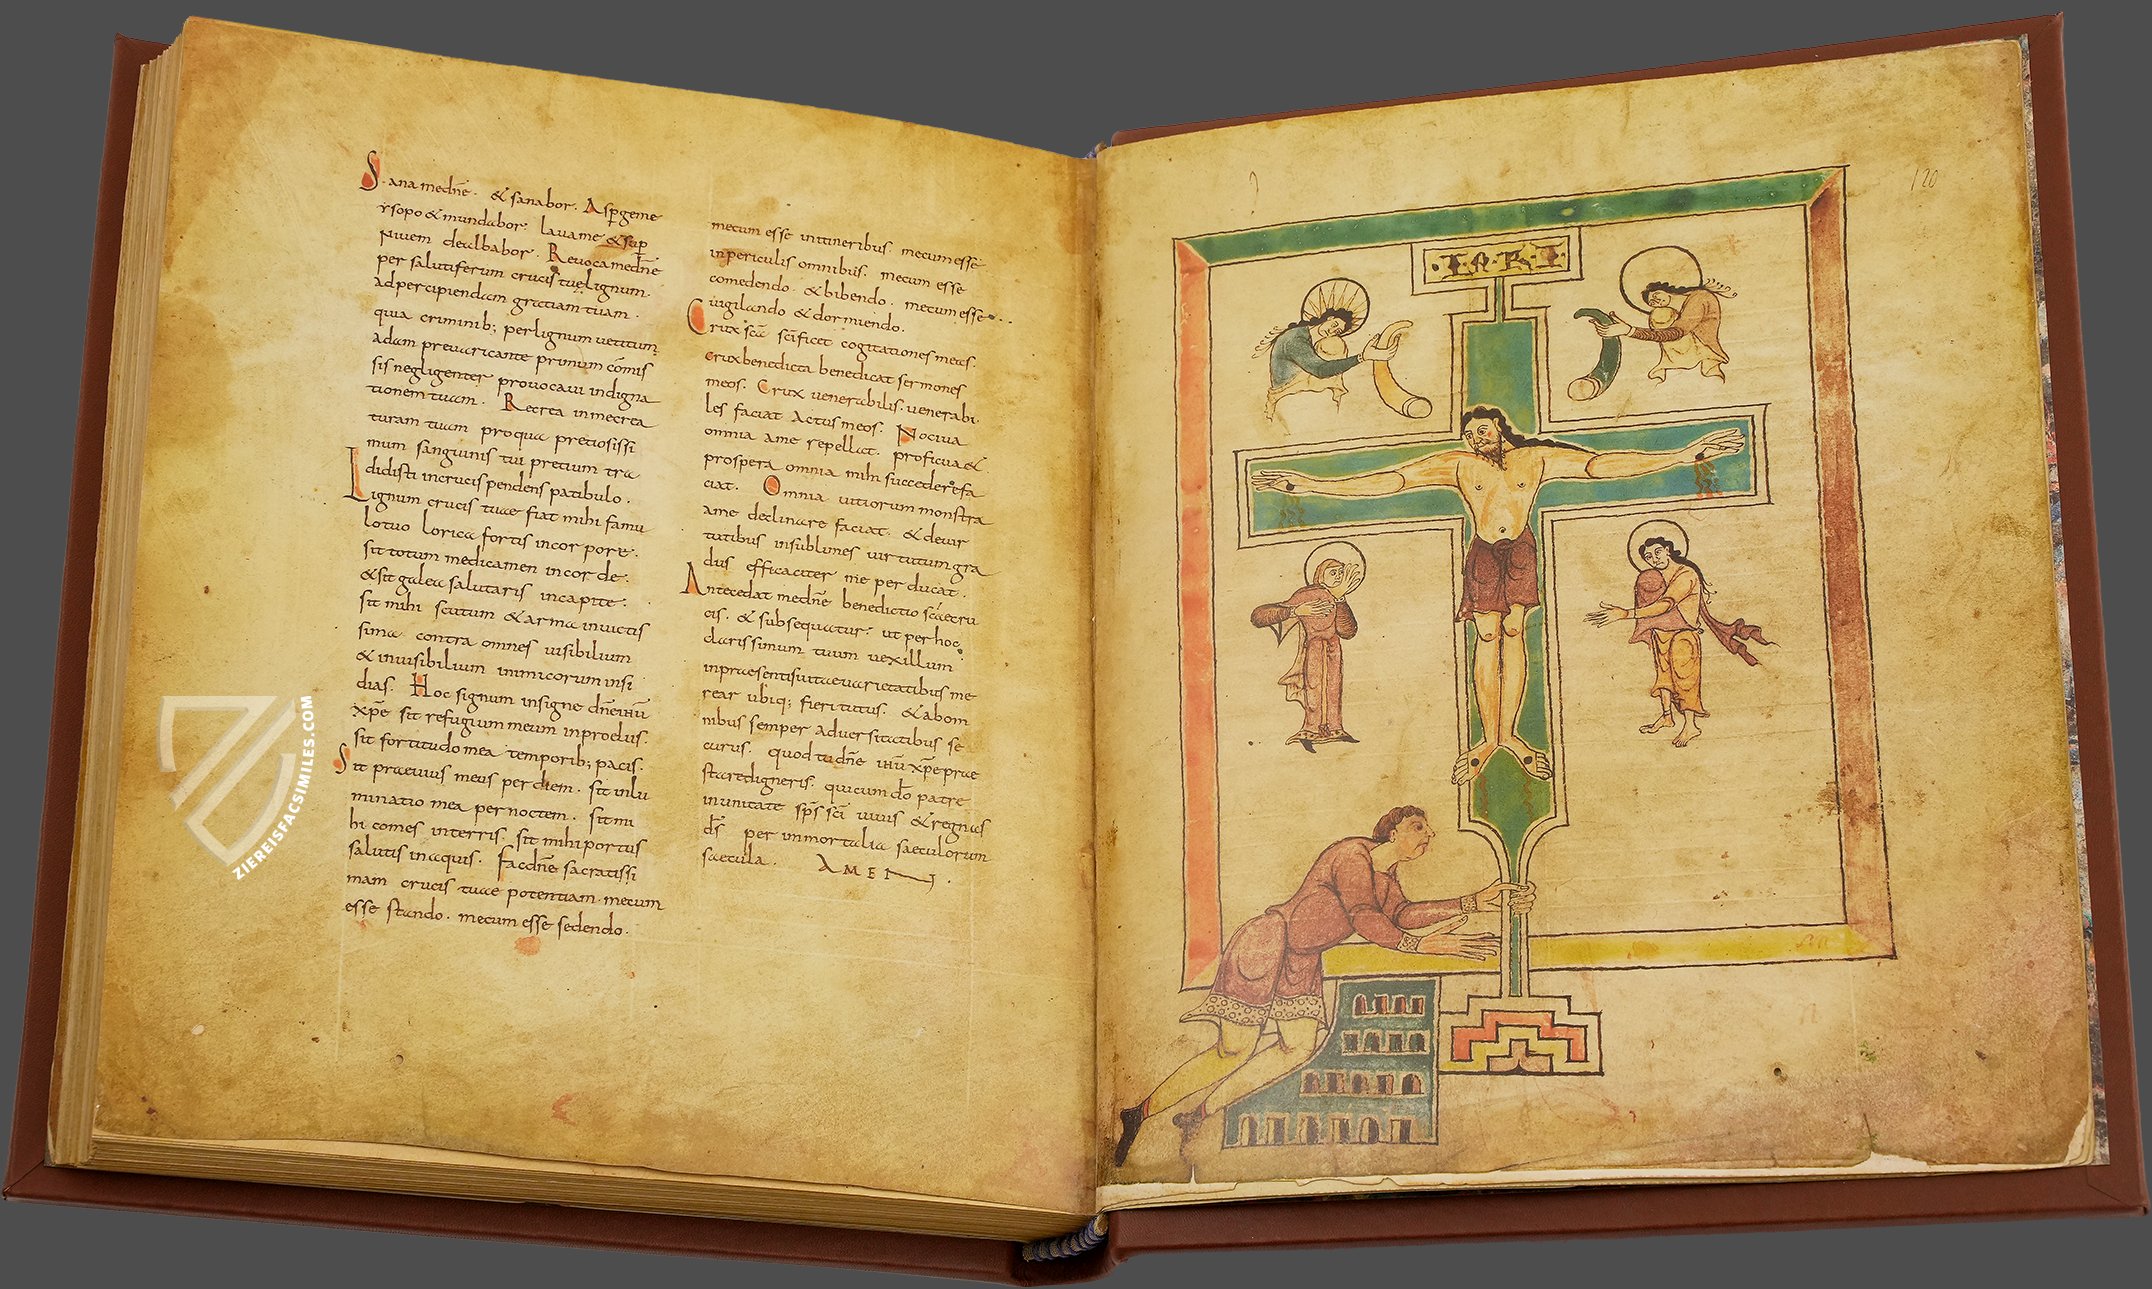 Sana me dñe. & sanabor. Asp̱ge me
ysopo & mundabor. lauame & sup
niuem dealbabor. Reuoca me dñe
per salutiferum crucis tuę lignum.
ad percipiendam gratiam tuam.
quia criminib; per lignum uetitum
adam preuaricante primum cõmis
sis negligenter prouocaui indigna
tionem tuam. Recrea in me crea
turam tuam pro qua pretiosissi
mum sanguinis tui pretium tra
didisti in crucis pendens patibulo.
Lignum crucis tuae fiat mihi famu
lo tuo lorica fortis in corpore.
sit totum medicamen in corde.
& sit galea salutaris in capite.
sit mihi scutum & arma inuictis
sima contra omnes uisibilium
& inuisibilium inimicorum insi
dias. Hoc signum insigne dñe ihũ
xp̃e sit refugium meum in proeliis.
sit fortitudo mea temporib; pacis.
Sit praeuius meus per diem. sit inlu
minatio mea per noctem. sit mi
hi comes in terris. sit mihi portus
salutis in aquis. fac dñe sacratissi
mam crucis tuae potentiam mecum
esse stando. mecum esse sedendo.
mecum esse in itineribus. mecum esse
in periculis omnibus. mecum esse
comedendo. & bibendo. mecum esse
uigilando & dormiendo.
Crux sc̃a sc̃ificet cogitationes meas.
crux benedicta benedicat sermones
meos. Crux uenerabilis. uenerabi
les faciat actus meos. Nociua
omnia a me repellat. proficua &
prospera omnia mihi succedere fa
ciat. Omnia uitiorum monstra
a me declinare faciat. & de uir
tutibus in sublimes uirtutum gra
dus efficaciter me perducat.
Antecedat me dñe benedictio sc̃ae cru
cis. & subsequatur. ut per hoc
clarissimum tuum uexillum
in praesentis uitae uarietatibus me
rear ubiq; fieri tutus. & ab om
nibus semper aduersitatibus se
curus. quod tu dñe ihũ xp̃e prae
stare digneris. qui cum dõ patre
in unitate sp̃s sc̃i uiuis & regnas
d̃s per immortalia saeculorum
saecula. AMEN.
120
·I·N·R·I·
ZIEREISFACSIMILES.COM